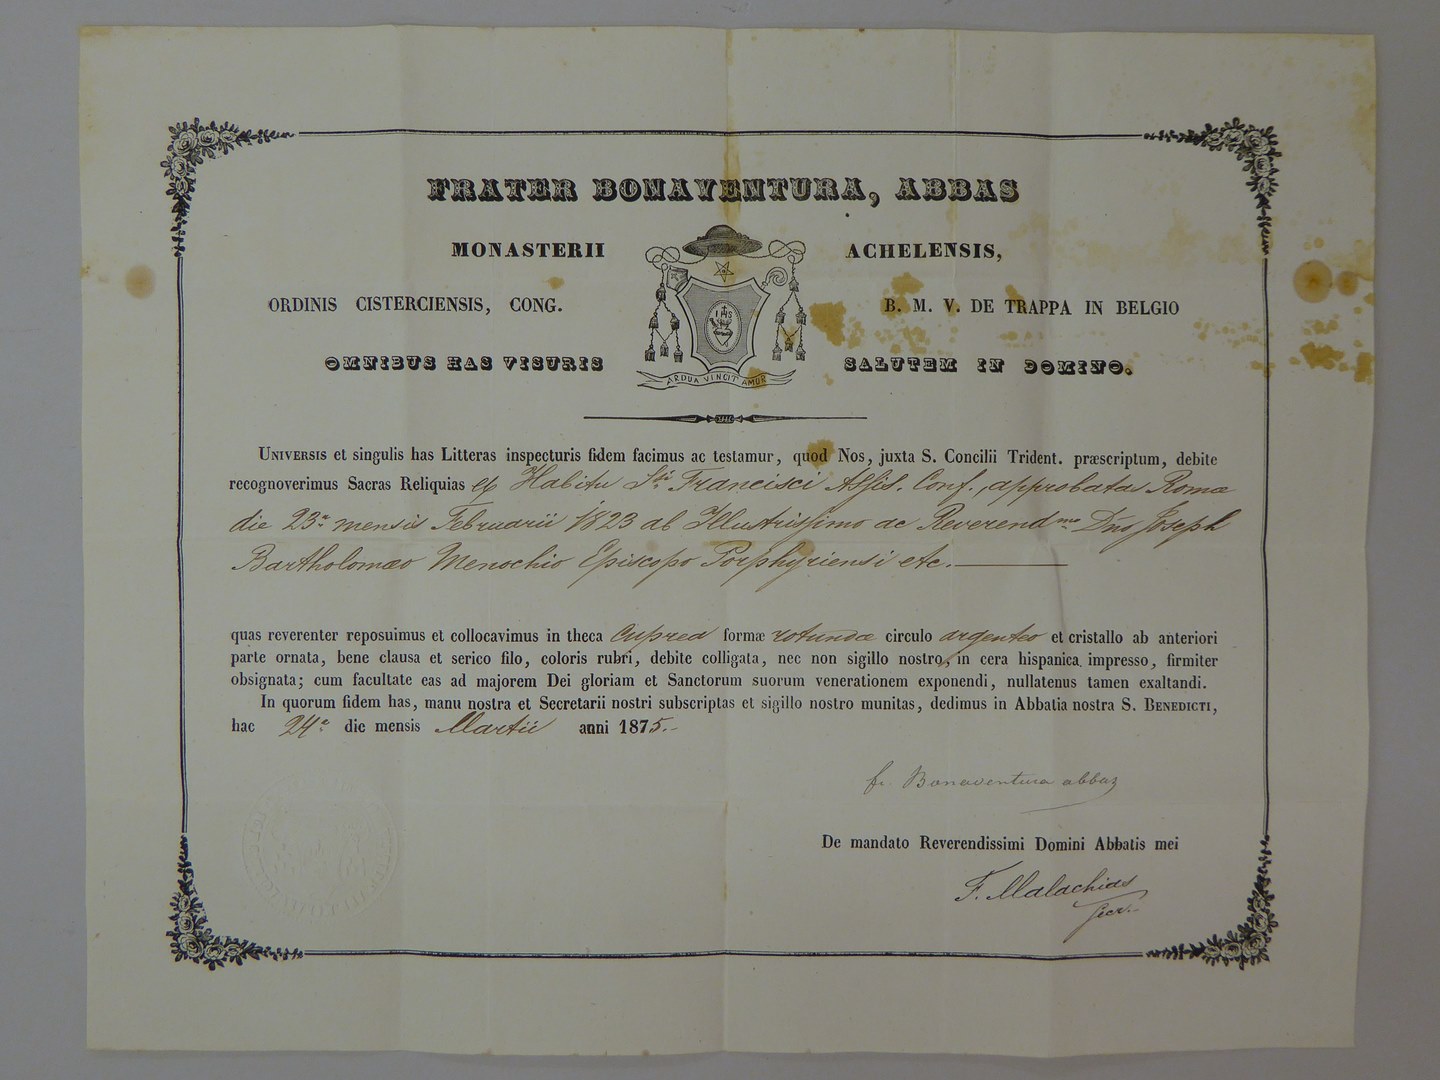 FRATER BONAVENTURA, ABBAS
MONASTERII ACHELENSIS,
ORDINIS CISTERCIENSIS, CONG. B. M. V. DE TRAPPA IN BELGIO
OMNIBUS HAS VISURIS SALUTEM IN DOMINO.
IHS
ARDUA VINCIT AMOR
UNIVERSIS et singulis has Litteras inspecturis fidem facimus ac testamur, quod Nos, juxta S. Concilii Trident. præscriptum, debite
recognoverimus Sacras Reliquias ex Habitu Sti Francisci Assis. Conf., approbatas Romæ
die 23a mensis Februarii 1823 ab Illustrissimo ac Reverendmo Dno Joseph
Bartholomæo Menochio Episcopo Porphyriensi etc.
quas reverenter reposuimus et collocavimus in theca cuprea formæ rotundæ circulo argenteo et cristallo ab anteriori
parte ornata, bene clausa et serico filo, coloris rubri, debite colligata, nec non sigillo nostro, in cera hispanica impresso, firmiter
obsignata; cum facultate eas ad majorem Dei gloriam et Sanctorum suorum venerationem exponendi, nullatenus tamen exaltandi.
In quorum fidem has, manu nostra et Secretarii nostri subscriptas et sigillo nostro munitas, dedimus in Abbatia nostra S. BENEDICTI,
hac 24a die mensis Martii anni 1875.-
fr. Bonaventura abbas
De mandato Reverendissimi Domini Abbatis mei
F. Malachias
Secr.